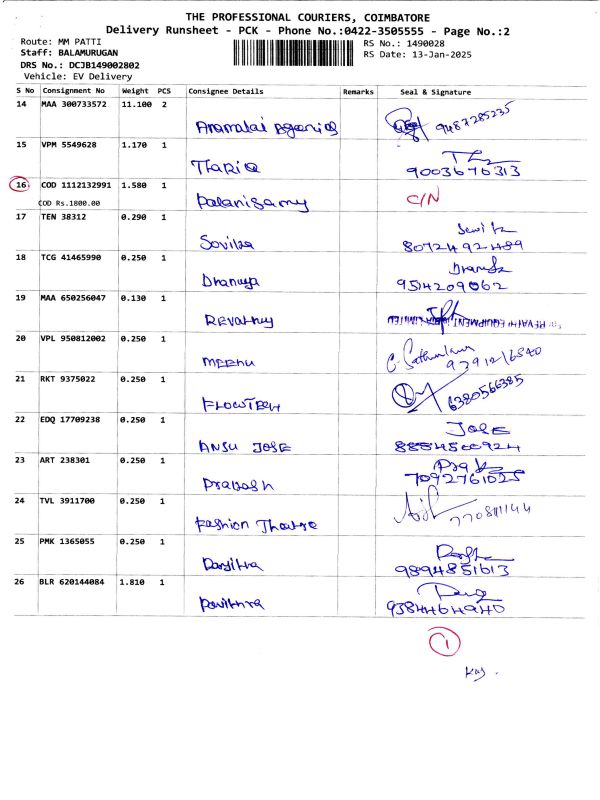 THE PROFESSIONAL COURIERS, COIMBATORE
Delivery Runsheet - PCK - Phone No.:0422-3505555 - Page No.:2
Route: MM PATTI
Staff: BALAMURUGAN
DRS No.: DCJB149002802
Vehicle: EV Delivery
RS No.: 1490028
RS Date: 13-Jan-2025
S No Consignment No Weight PCS Consignee Details Remarks Seal & Signature
14 MAA 300733572 11.100 2
9487285235
15 VPM 5549628 1.170 1
Thariq 9003676313
16 COD 1112132991 1.580 1
COD Rs.1800.00 Palanisamy C/N
17 TEN 38312 0.290 1
8072492489
18 TCG 41465990 0.250 1
Dhanuya 9514209062
19 MAA 650256047 0.130 1
Revathy
20 VPL 950812002 0.250 1
Meenu
21 RKT 9375022 0.250 1
FLOWTECH 6380566385
22 EDQ 17709238 0.250 1
JOSE
ANSU JOSE
23 ART 238301 0.250 1
Prakash 7092761025
24 TVL 3911700 0.250 1
Fashion
25 PMK 1365055 0.250 1
9894851613
26 BLR 620144084 1.810 1
Pavithra 9384464940
1